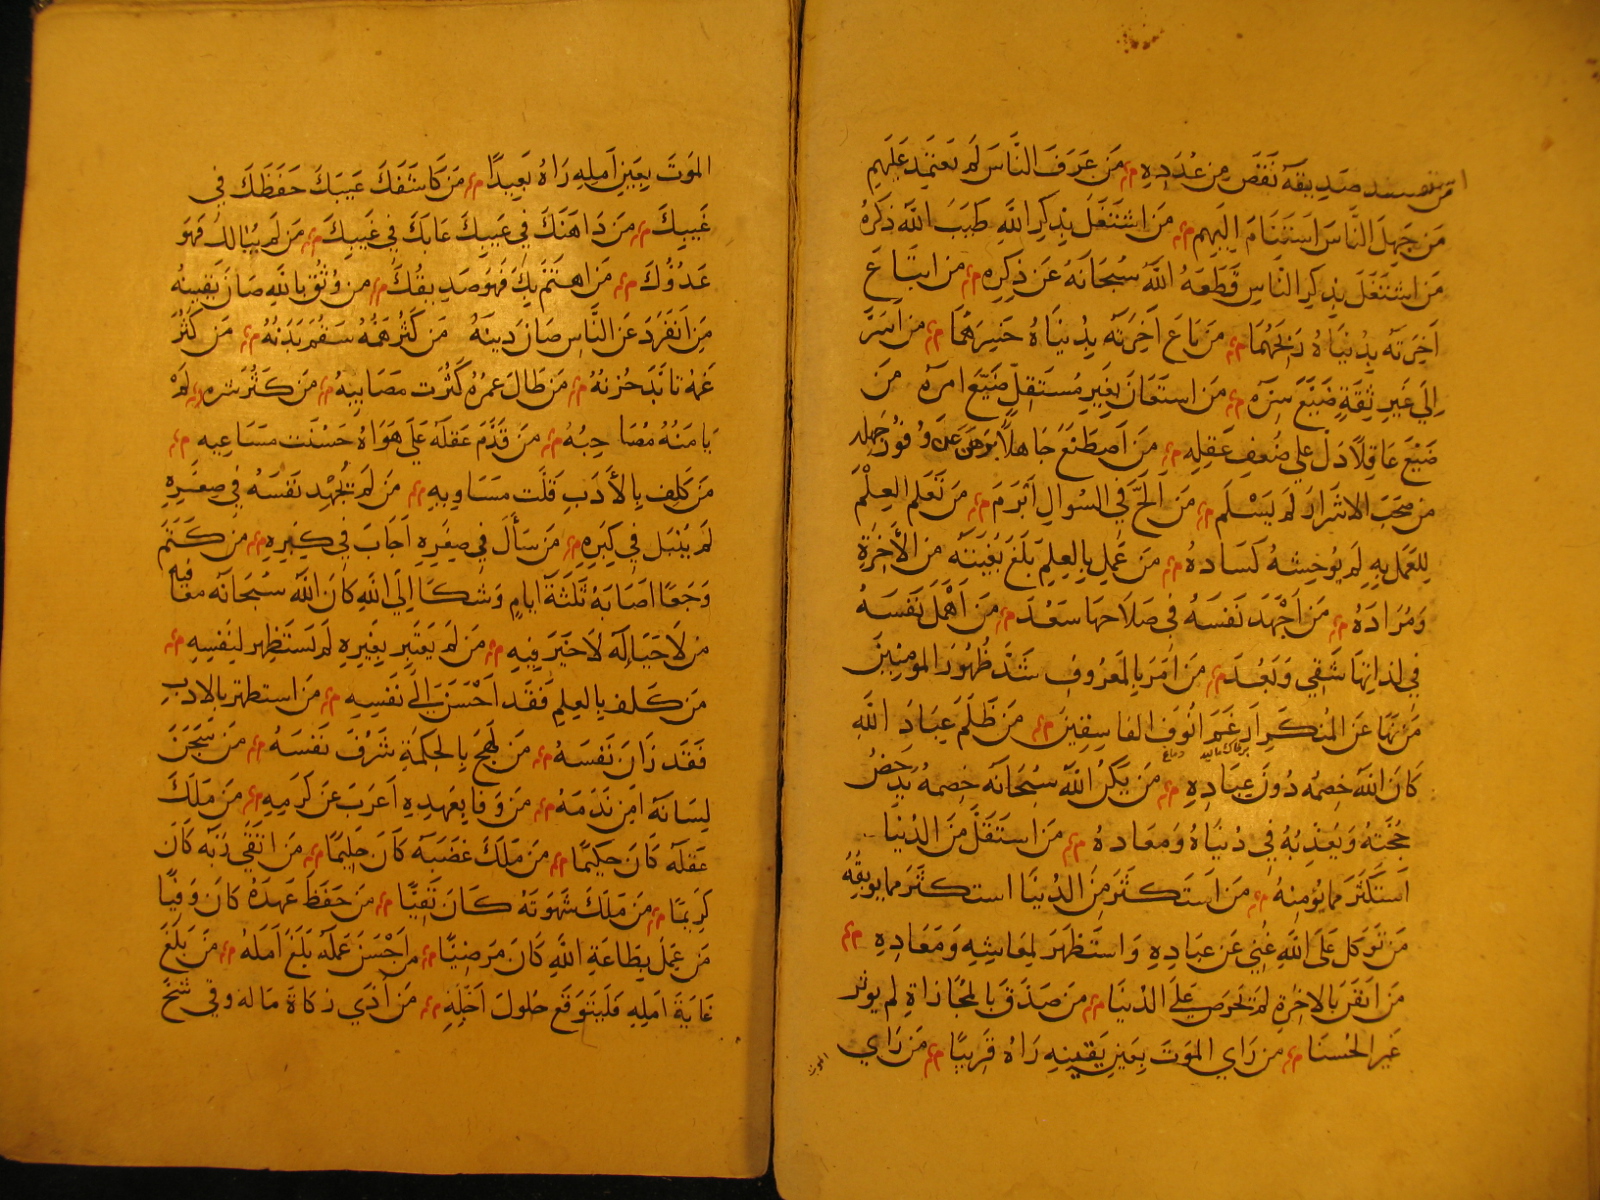 من استفسد صديقه نقص من عدده من عرف الناس لم يعتمد عليهم
من جهل الناس استنام اليهم من اشتغل بذكر الله طيب الله ذكره
من اشتغل بذكر الناس قطعه الله سبحانه عن ذكره من ابتاع
اخرته بدنياه ربحهما من باع اخرته بدنياه خسرهما من اسر
الي غير ثقة ضيع سره من استعان بغير مستقل ضيع امره من
ضيع عاقلا دل علي ضعف عقله من اصطنع جاهلا برهن عن وفور جهله
من صحب الاشرار لم يسلم من الح في السوال ابرم من تعلم العلم
للعمل به لم يوحشه كساده من عمل بالعلم بلغ بغيته من الأخرة
ومراده من اجهد نفسه في صلاحها سعد من اهمل نفسه
في لذاتها شقي وبعد من امر بالمعروف شد ظهور المومنين
من نها عن المنكر ارغم انوف الفاسقين من ظلم عباد الله
كان الله خصمه دون عباده من يكن الله سبحانه خصمه يدحض
حجته ويعذبه في دنياه ومعاده من استقل من الدنيا
استكثر مما يؤمنه من استكثر من الدنيا استكثر مما يوبقه
من توكل علي الله غني عن عباده واستظهر لمعاشه ومعاده
من اقر بالاخرة لم يحرص علي الدنيا من صدق بالمجازاة لم يوثر
غير الحسنا من راي الموت بعين يقينه راه قريبا من راي
الموت
الموت بعين امله راه بعيدا من كاشفك عيبك حفظك في
غيبك من داهنك في عيبك عابك في غيبك من لم يبالك فهو
عدوك من اهتم بك فهو صديقك من وثق بالله صان يقينه
من انفرد عن الناس صان دينه من كثر همه سقم بدنه من كثر
غمه تابد حزنه من طال عمره كثرت مصايبه من كثر شره لم
يامنه مصاحبه من قدم عقله علي هواه حسنت مساعيه
من كلف بالأدب قلت مساويه من لم يجهد نفسه في صغره
لم ينبل في كبره من سأل في صغره اجاب في كبره من كتم
وجعا اصابه ثلثة ايام وشكا الي الله كان الله سبحانه معافيه
من لا حيا له لا خير فيه من لم يعتبر بغيره لم يستظهر لنفسه
من كلف بالعلم فقد احسن الي نفسه من استظهر بالادب
فقد زان نفسه من لهج بالحكمة شرف نفسه من سجن
لسانه امن ندمه من وفا بعهده اعرب عن كرمه من ملك
عقله كان حكيما من ملك غضبه كان حليما من اتقي ربه كان
كريما من ملك شهوته كان تقيا من حفظ عهده كان وفيا
من عمل بطاعة الله كان مرضيا من احسن عمله بلغ امله من بلغ
غاية امله فليتوقع حلول اجله من أدي زكاة ماله وقي شح